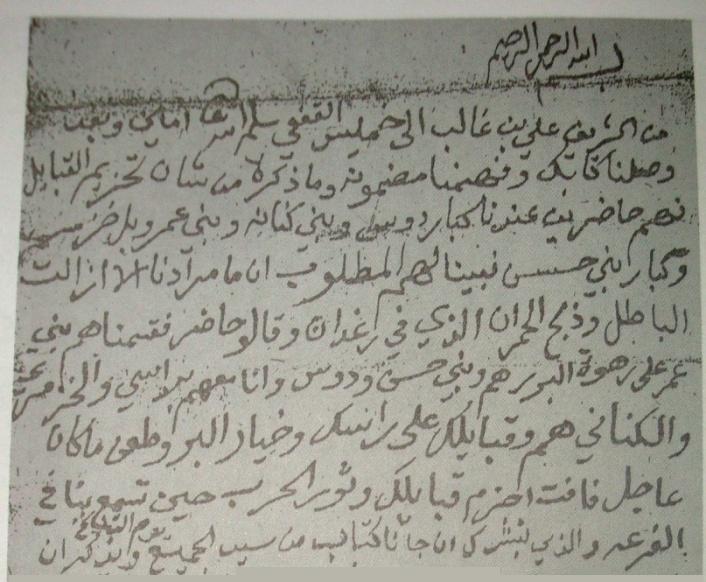 بسم الله الرحمن الرحيم
من الشريف علي بن غالب الى خميس القفعي سلمه الله اماي وبعد
وصلنا كتابك وفهمنا مضمونه وما ذكرة من شان تحزيم القبايل
فهم حاضرين عندنا كبار دوس وبني كنانه وبني عمر وبل خزمر
وكبار بني حسن نبينا لهم المطلوب ان ما مرادنا الا ازالت
الباطل وذبح الحمران الذي في رغدان وقالو حاضر فقسمناهم بني
عمر على رهوة البر برهم وبني حسن ودوس وانا معهم براسي والخزمري
والكناني هم وقبايلك على راسك وخيار البر وطعي ماكان
عاجل فانت احزم قبايلك وثور الحرب حين تسمع بنا في
القرعه والذي نبشرك ان جانا كتاب من سيد الجميع ويذكر ان